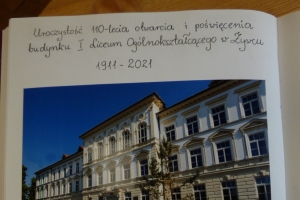 Uroczystość 110-lecia otwarcia i poświęcenia
budynku I Liceum Ogólnokształcącego w Żywcu
1911-2021